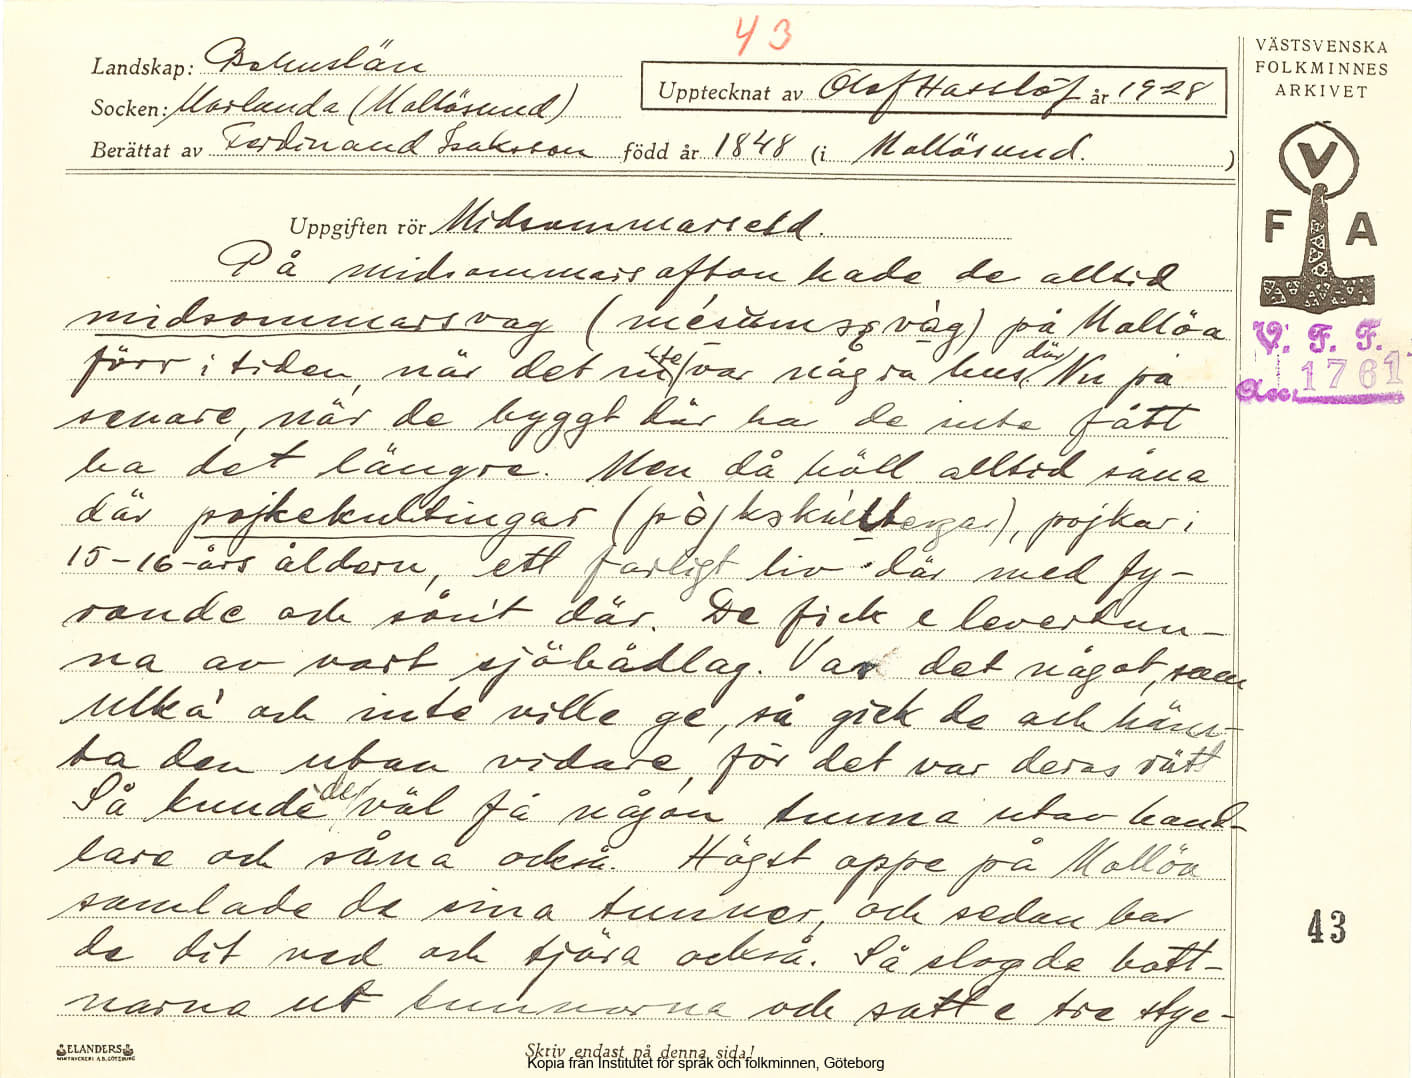 43
Landskap: Bohuslän
Socken: Morlanda (Mollösund)
Berättat av Ferdinand Isaksson född år 1848 (i Mollösund. )
Upptecknat av Olof Hasslöf år 1928
VÄSTSVENSKA
FOLKMINNES
ARKIVET
V
F A
V. F. F.
1761
Uppgiften rör Midsommarseld.
På midsommarsafton hade de alltid
midsommarsvag ( ) på Mollöa
förr i tiden, när det inte var några hus där. Nu på
senare, när de byggt där har de inte fått
ha det längre. Men då höll alltid såna
där pojkekultingar ( ), pojkar i
15-16-års åldern, ett farligt liv där med fy-
rande och sånt där. De fick e levertun-
na av vart sjöbådlag. Var det något, som
och inte ville ge, så gick de och häm-
ta den utan vidare, för det var deras rätt
Så kunde de väl få någon tunna utav hand-
lare och såna också. Högst oppe på Mollöa
samlade de sina tunner, och sedan bar
de dit ved och tjära också. Så slog de bott-
narna ut tunnorna och satte tre stye-
43
ELANDERS
Skriv endast på denna sida!
Kopia från Institutet för språk och folkminnen, Göteborg